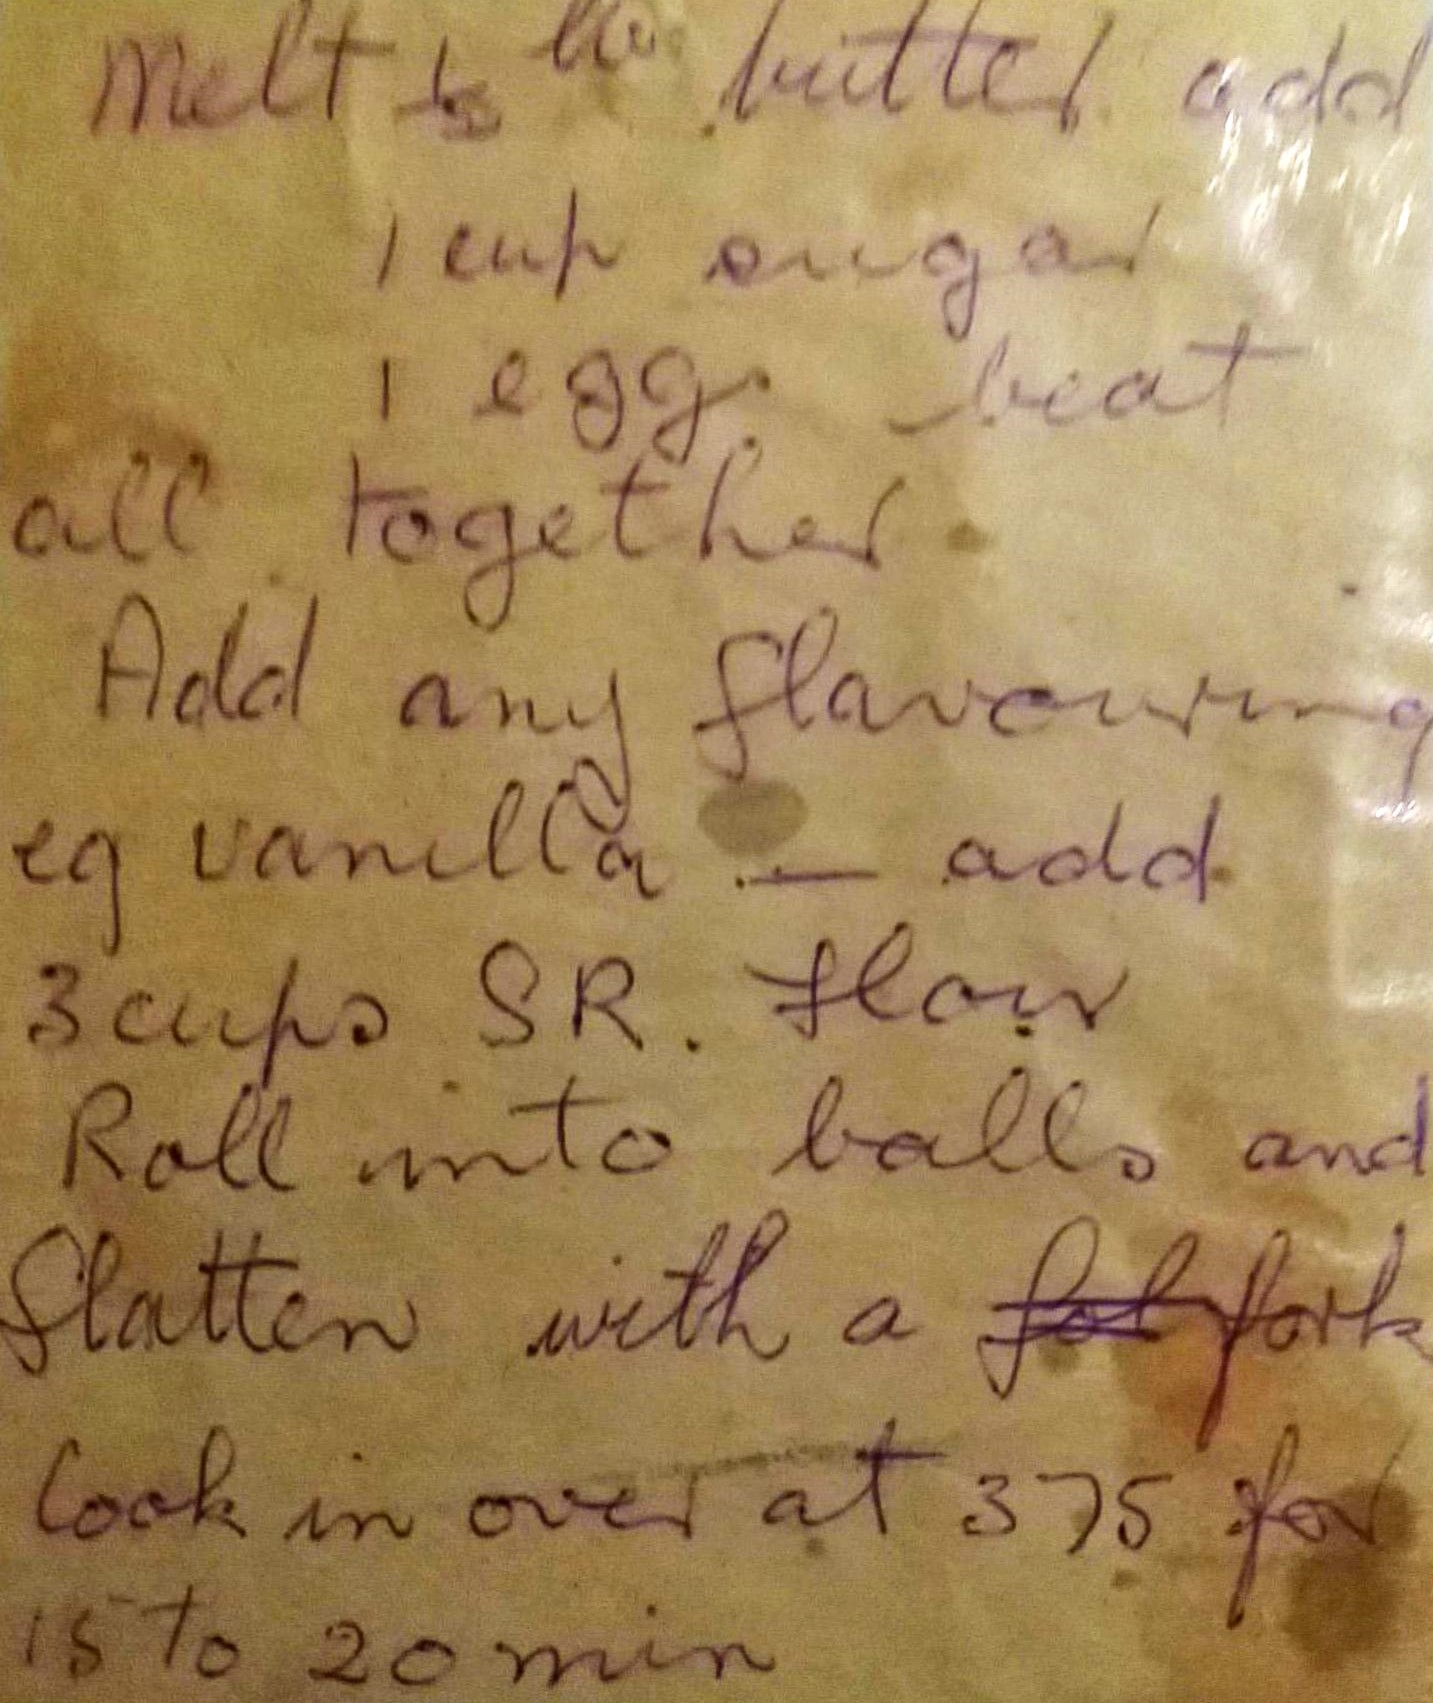 Melt ½ lb. butter add
1 cup sugar
1 egg. beat
all together.
Add any flavouring
eg vanilla — add
3 cups SR. flour
Roll into balls and
flatten with a fork
Cook in over at 375 for
15 to 20 min